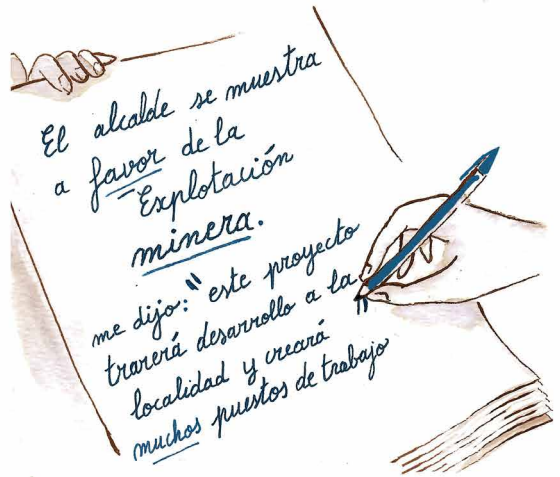 El alcalde se muestra
a favor de la
Explotación
minera.
me dijo: "este proyecto
trarerá desarrollo a la
localidad y creará
muchos puestos de trabajo"